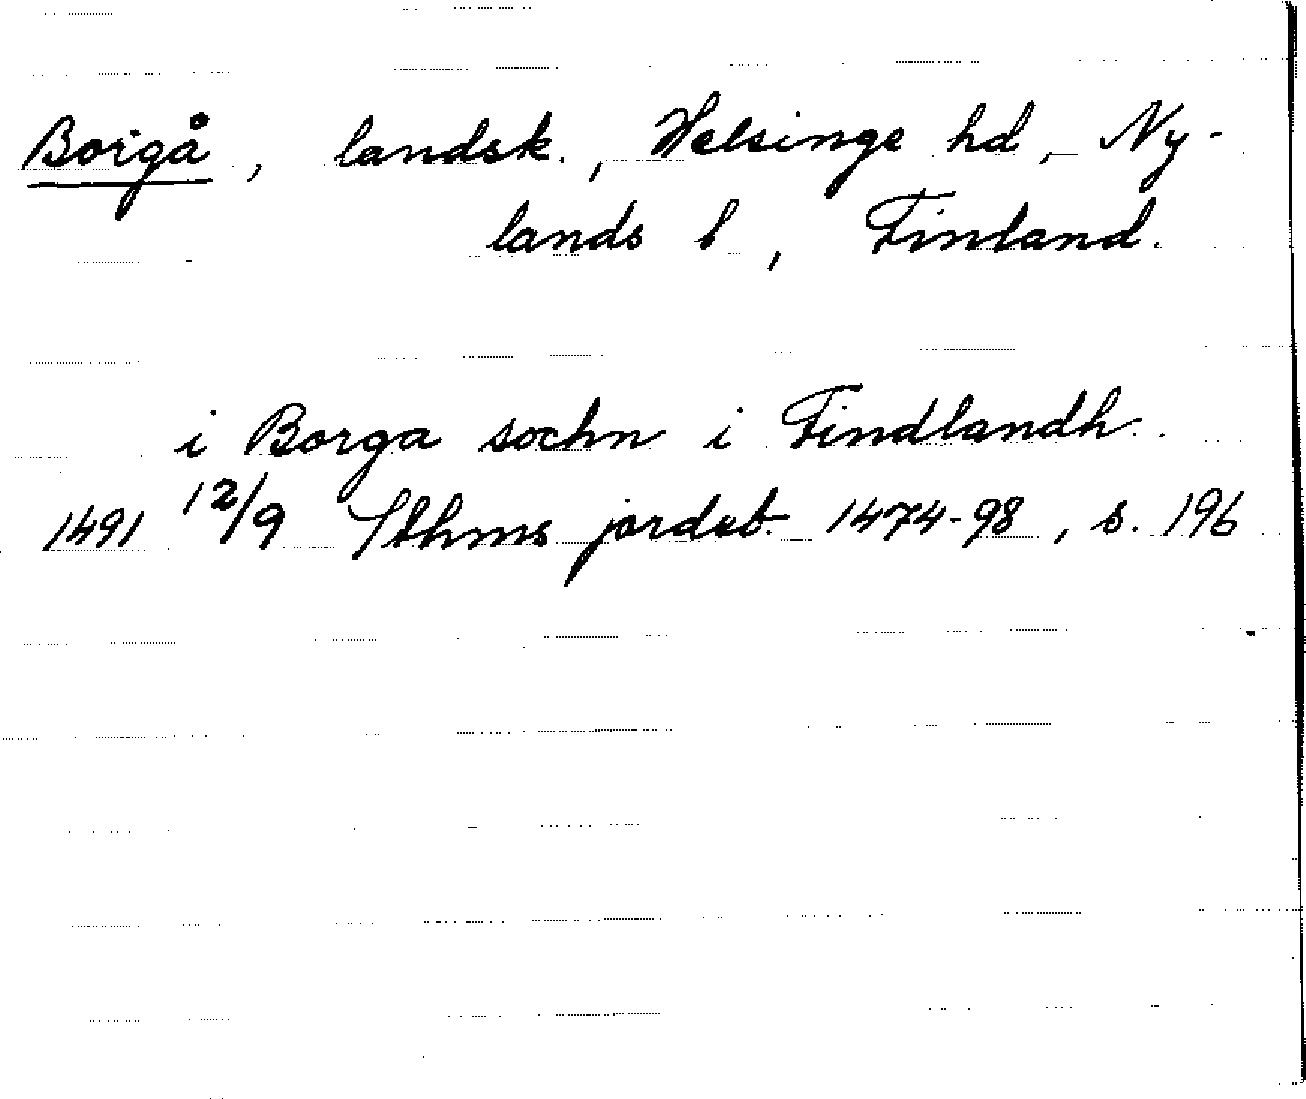 Borgå, landsk., Helsinge hd, Ny-
lands l, Finland.
i Borga sochn i Findlandh.
1491 12/9 Sthms jordeb. 1474-98, s. 196